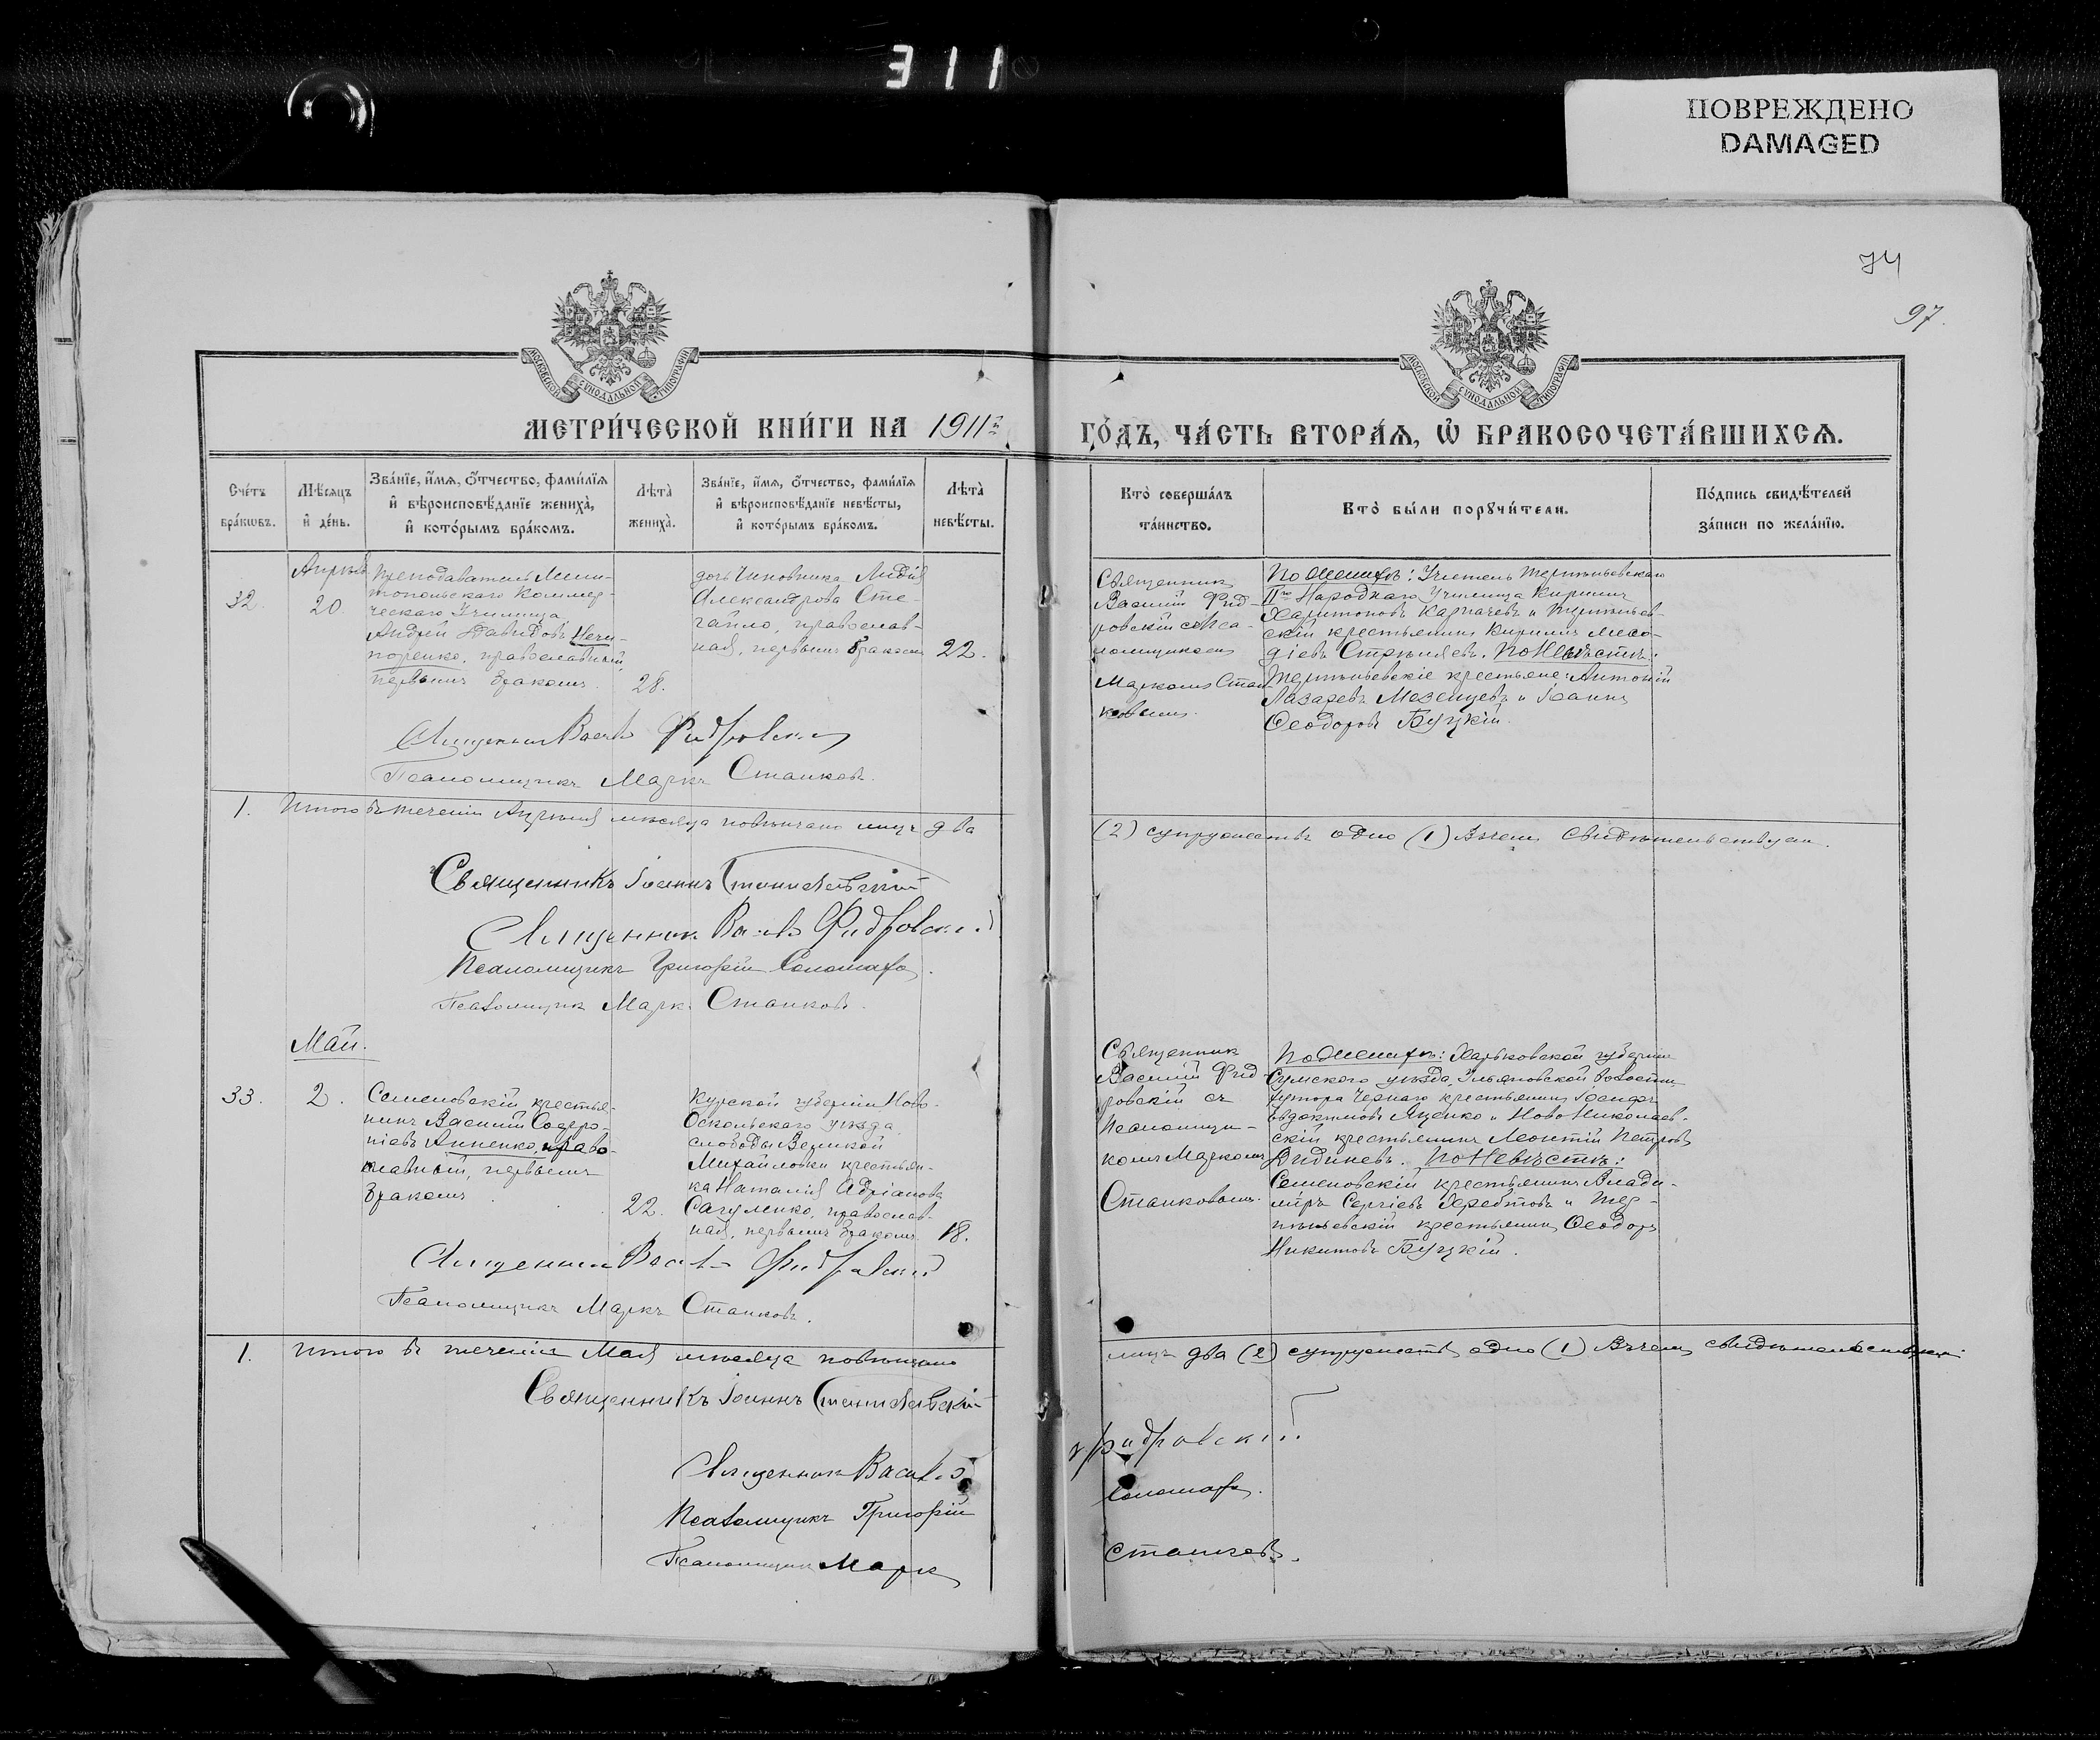 311
ПОВРЕЖДЕНО
DAMAGED
74
97.
МОСКОВСКОЙ СѴНОДАЛЬНОЙ ТИПОГРАФІИ
МОСКОВСКОЙ СѴНОДАЛЬНОЙ ТИПОГРАФІИ
МЕТРИ́ЧЕСКОЙ КНИ́ГИ НА 1911 г.
ГО́ДЪ, ЧА́СТЬ ВТОРА́Ѧ, Ѽ БРАКОСОЧЕТА́ВШИХСѦ.
Сче́тъ бра́кѡвъ.
Мѣ́сѧцъ и҆ де́нь.
Зва́нїе, и҆́мѧ, ѻ҆́тчество, фами́лїѧ
и҆ вѣроисповѣ́данїе жениха̀,
и҆ кото́рымъ бра́комъ.
Лѣта̀ жениха̀.
Зва́нїе, и҆́мѧ, ѻ҆́тчество, фами́лїѧ
и҆ вѣроисповѣ́данїе невѣ́сты,
и҆ кото́рымъ бра́комъ.
Лѣта̀ невѣ́сты.
Кто̀ соверша́лъ та́инство.
Кто̀ бы́ли порꙋчи́тели.
По́дпись свидѣ́телей за́писи по жела́нїю.
32.
Апрѣль
20.
Преподаватель Мели-
топольскаго Коммер-
ческаго Училища
Андрей Давидовъ Нечи-
поренко, православный,
первымъ бракомъ.
28.
дочь Чиновника Лидія
Александрова Сте-
гайло, православ-
ная, первымъ бракомъ
22.
Священникъ
Василій Фид-
ровскій съ Пса-
ломщикомъ
Маркомъ Стан-
ковымъ.
По Женихѣ: Учитель Терпѣньевскаго
II го Народнаго Училища Кириллъ
Харитоновъ Карпачевъ и Терпѣньев-
скій крестьянинъ Кириллъ Меѳо-
діевъ Стрѣляевъ. По Невѣстѣ:
Терпѣньевскіе крестьяне: Антоній
Лазаревъ Мезенцевъ и Іоаннъ
Ѳеодоровъ Буцкій.
Священникъ Василій Фидровскій
Псаломщикъ Маркъ Станковъ.
1. Итого въ теченіи Апрѣля мѣсяца повѣнчано лицъ два
(2) супружествъ одно (1) Въ чемъ свидѣтельствуем.
Священникъ Іоаннъ Станиславскій
Священник Василій Фидровскій
Псаломщикъ Григорій
Псаломщик Марк Станковъ.
Май.
33.
2.
Семеновскій крестья-
нинъ Василій Созеро-
ніевъ Анненко, право-
славный, первымъ
бракомъ.
22.
Курской губерніи Ново-
Оскольскаго уѣзда
слободы Великой
Михайловки крестьян-
ка Наталія Адріанова
Сагуленко, православ-
ная, первымъ бракомъ.
18.
Священникъ
Василій Фид-
ровскій съ
Псаломщи-
комъ Маркомъ
Станковымъ.
По Женихѣ: Харьковской губерніи
Сумского уѣзда, Ульяновской волости
хутора Чернаго крестьянинъ Іосифъ
Евдокимовъ Яценко и НовоНиколаев-
скій крестьянинъ Леонтій Петровъ
Дидичевъ. По Невѣстѣ:
Семеновскій крестьянинъ Влади-
миръ Сергіевъ Жеребтовъ и Тер-
пѣньевскій крестьянинъ Ѳеодоръ
Никитовъ Буцкій.
Священник Василій Фидровскій
Псаломщикъ Маркъ Станковъ.
1. Итого въ теченіи Мая мѣсяца повѣнчано
лицъ два (2) супружествъ одно (1) Въ чемъ свидѣтельствуем
Священникъ Іоаннъ Станиславскій
Священник Василій Фидровскій
Псаломщикъ Григорій
Псаломщик Марк Станковъ.